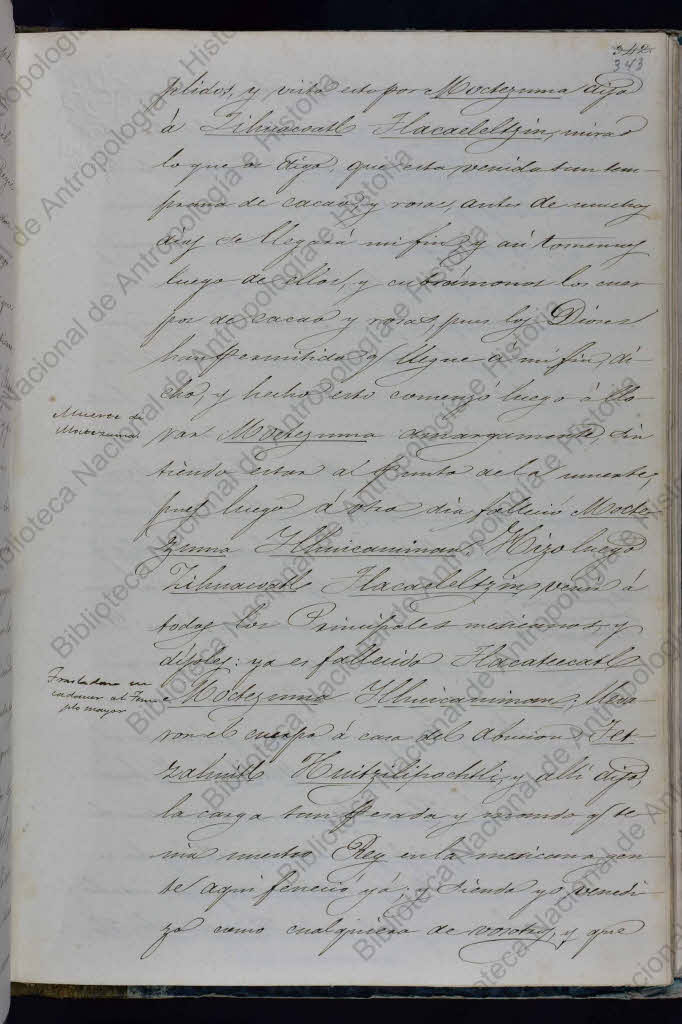 342
343
plidos, y visto esto por Moctezuma dijo
á Zihuacoatl Tlacaeleltzin, mirad
lo que os digo, que esta venida tan tem-
prana de cacao, y rosas, antes de muchos
dias se llegará mi fin, y asi tomemos
luego de ellos, y cubrámonos los cuer-
pos de cacao y rosas, pues los Dioses
han permitido q̃ llegue á mi fin, di-
cho, y hecho esto comenzó luego á llo-
rar Moctezuma amargamente, sin
tiendo estar al punto de la muerte,
pues luego á otro dia falleció Mocte-
zuma Ilhuicaminan. Hizo luego
Zihuacoatl Tlacaeleltzin venir á
todos los Principales mexicanos, y
dijoles: ya es fallecido Tlacateecatl
Moctezuma Ilhuicaminan, lleva-
ron el cuerpo á casa del Abucion Tet-
zahuitl Huitzilipochtli, y allí dijo,
la carga tan pesada y mando q̃ te-
nia nuestro Rey en la mexicana gen-
te aqui feneció yá; y siendo yo venedi-
zo como cualquiera de vosotros, y que
Muerte de
Moctezuma.
Trasladan su
cadaver al Tem-
plo mayor
Biblioteca Nacional de Antropología e Historia